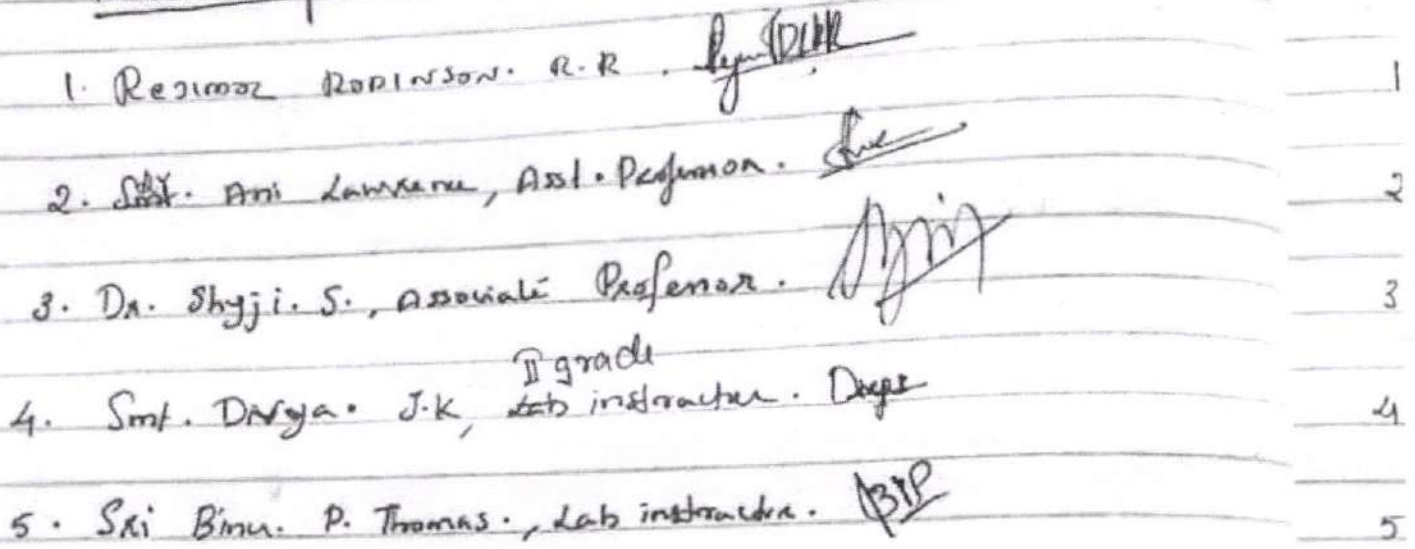 1. Rejimol Robinson. R.R.
1
2. Smt. Ani Lawrence, Asst. Professor.
2
3. Dr. Shyji. S., Associate Professor.
3
II grade
4. Smt. Divya. J.K, Lab instructor. Divya
4
5. Sri Binu. P. Thomas., Lab instructor.
5